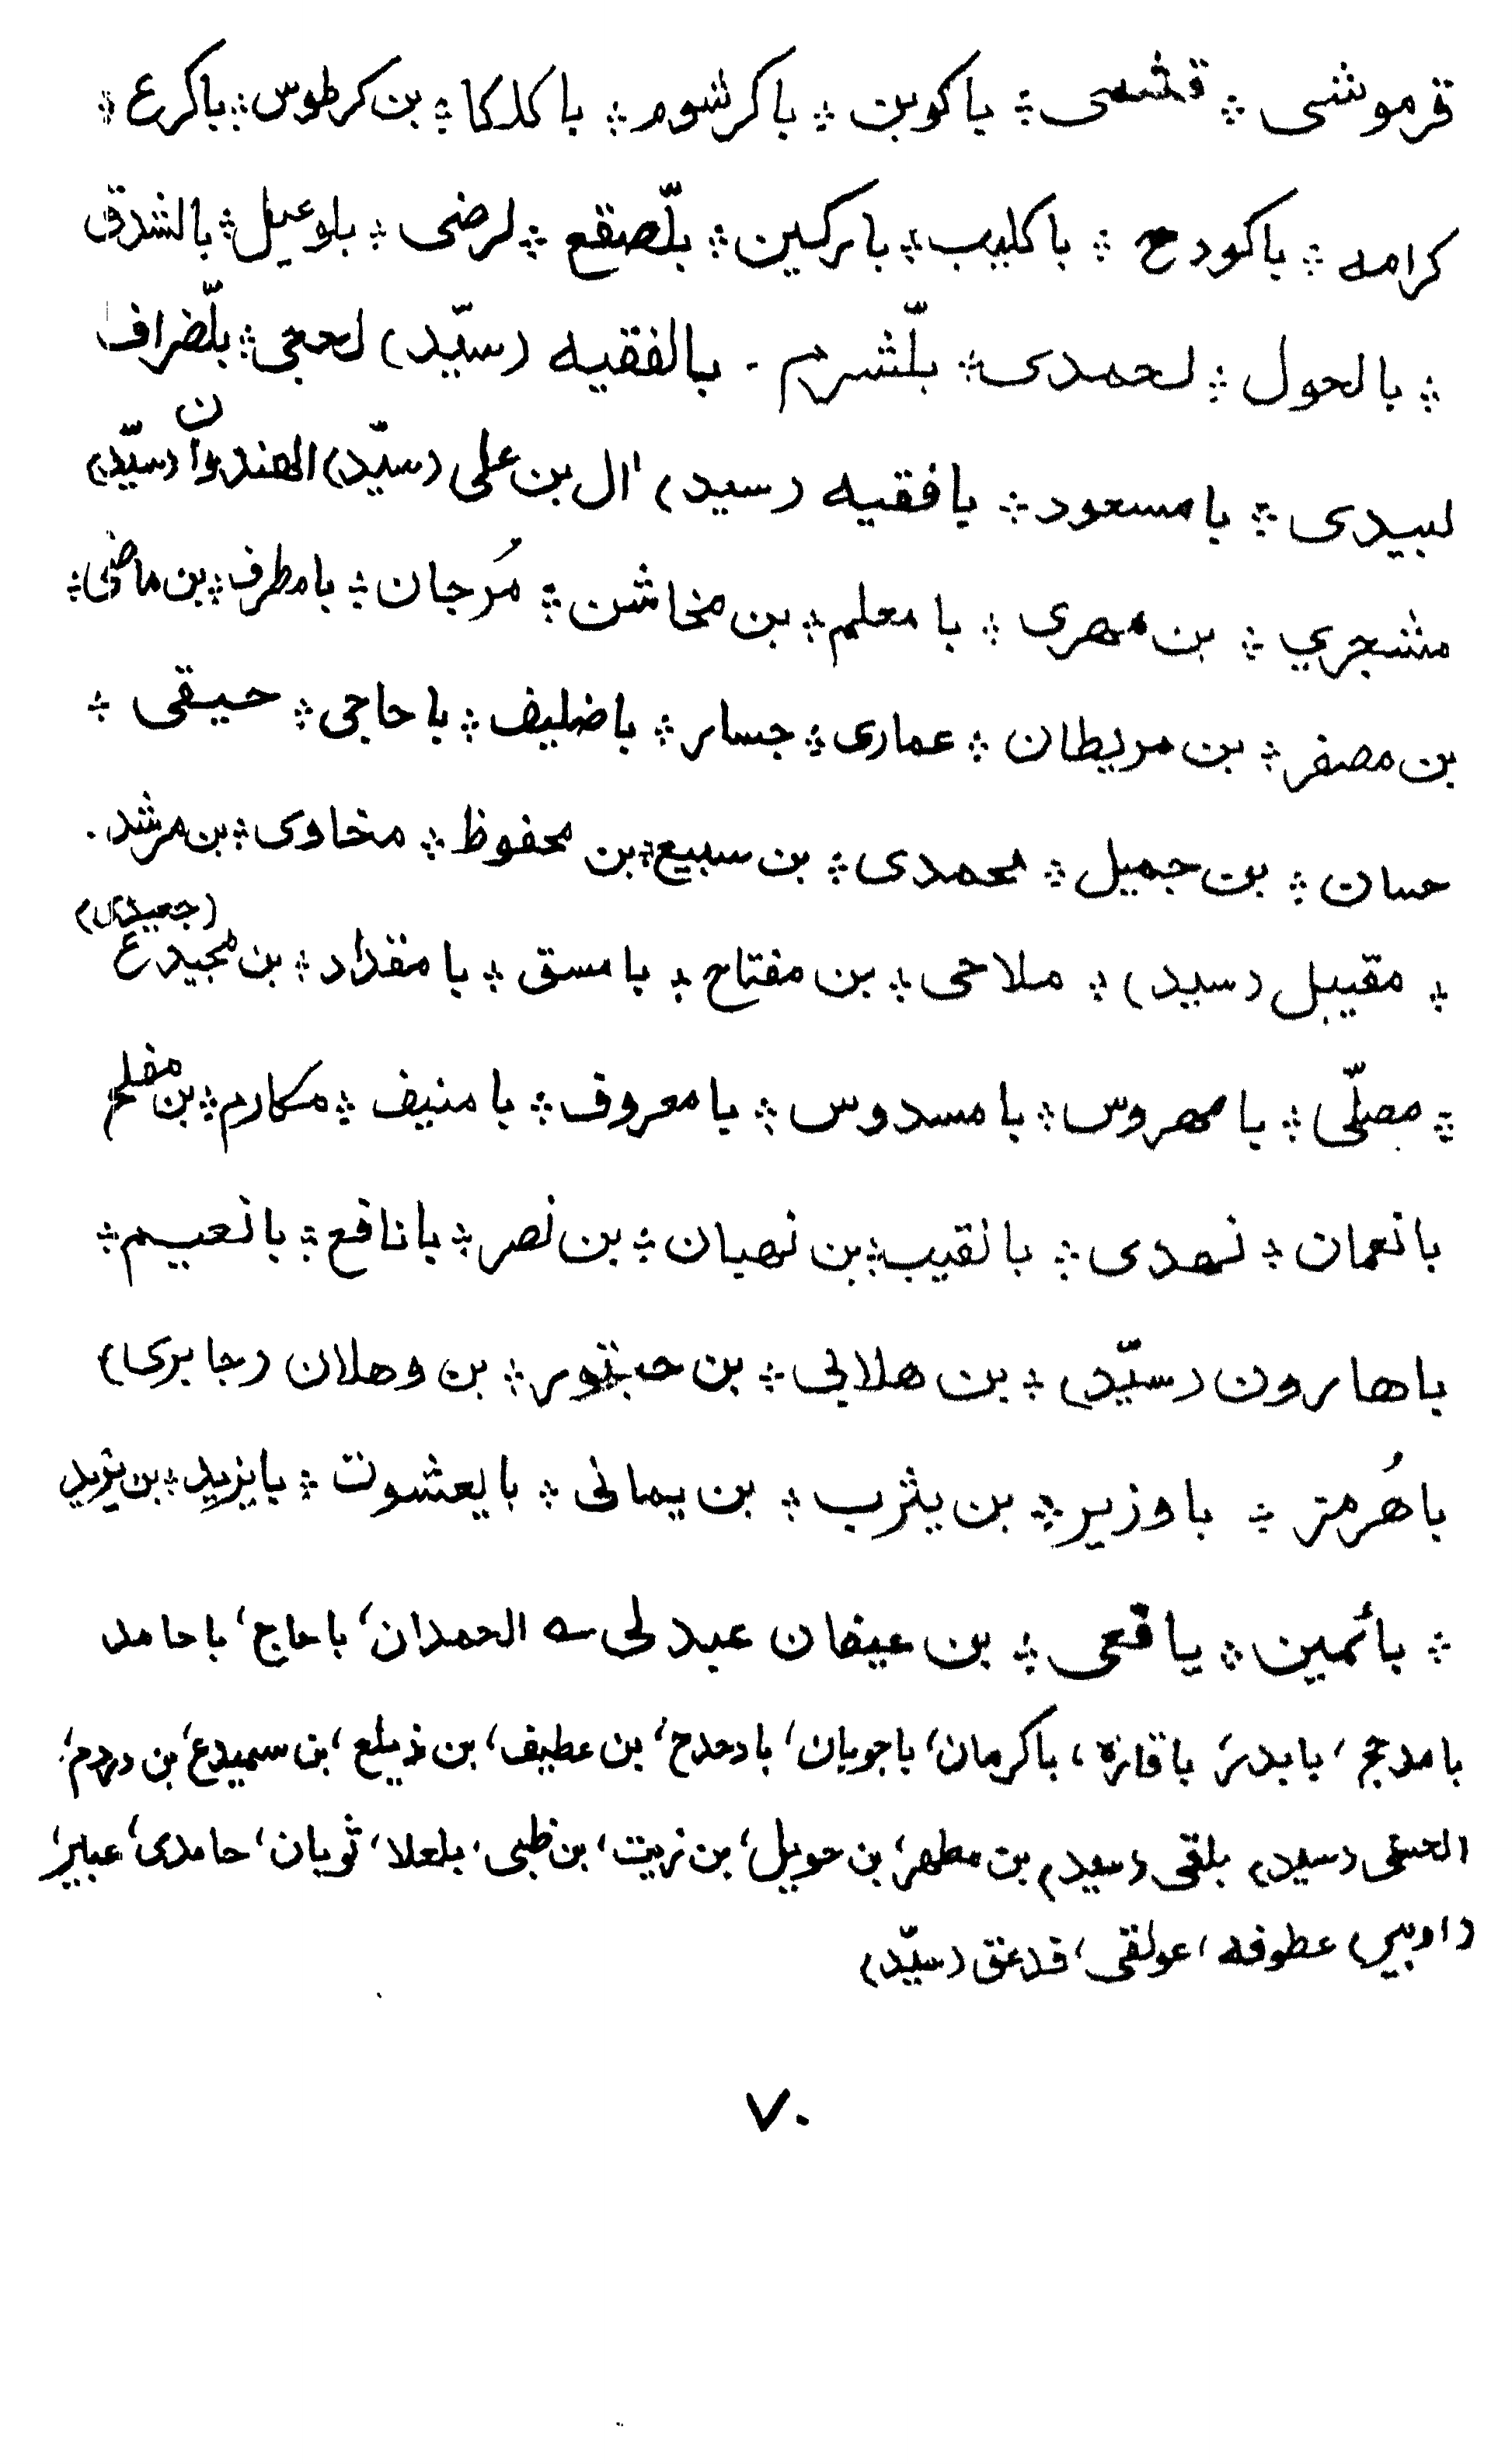 قرموشى ؞ قشمى ؞ باكوبن ؞ باكرشوم ؞ باكلكا ؞ بن كرطوس ؞ باكرع ؞
كرامه ؞ باكودح ؞ باكليب ؞ باركين ؞ بلّصقع ؞ لرضى ؞ بلوعيل ؞ بالشدق
؞ بالحول ؞ لحمدى ؞ بلّشرم . بالفقيه (سيّد) لحجى ؞ بلّضراف
لبيدى ؞ بامسعود ؞ بافقيه (سيد) ال بن على (سيّد) الهندوان (سيّد)
مشجري ؞ بن مهرى ؞ بامعلم ؞ بن مخاشن ؞ مُرجان ؞ بامطرف ؞ بن ماضى ؞
بن مصفر ؞ بن مريطان ؞ عمارى ؞ جسار ؞ باضليف ؞ باحاجى ؞ حيقى ؞
حسان ؞ بن جميل ؞ محمدى ؞ بن سبيع ؞ بن محفوظ ؞ مخاوى ؞ بن مرشد .
؞ مقيبل (سيد) ؞ ملاحى ؞ بن مفتاح ؞ بامسق ؞ بامقداد ؞ بن مجيدع (جعيدى)
؞ مصلّى ؞ بامهروس ؞ بامسدوس ؞ بامعروف ؞ بامنيف ؞ مكارم ؞ بن مفلح
بانعمان ؞ نهدى ؞ بانقيب ؞ بن نهبان ؞ بن نصر ؞ بانافع ؞ بانعيم ؞
باهارون (سيّد) ؞ بن هلابى ؞ بن حبتور ؞ بن وهلان (جابرى)
باهُرمز ؞ باوزير ؞ بن يثرب ؞ بن يمانى ؞ بايعشوت ؞ بايزيد ؞ بن يزيد
؞ بائمين ؞ يافعى ؞ بن عيفان عبدلى ـه الحمدان، باحاج، باحامد
بامدحج، بابدر، باقازه، باكرمان، باجوبان، بادحدح، بن عطيف، بن ذيلع، بن سميدع، بن دردم،
الحسنى (سيد) بلقى (سيد) بن مطهر، بن حويل، بن زيت، بن ظبى، بلعلا، ثوبان، حامدى، عبير،
عطوفه، عولقى، قدعق (سيّد)
٧٠